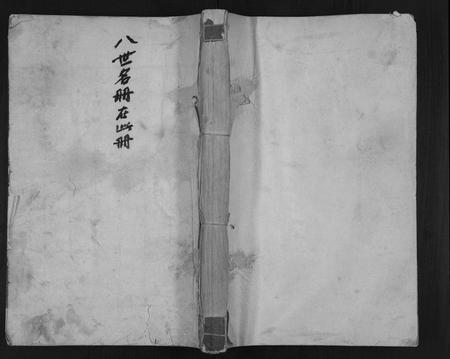 八世名册在此册